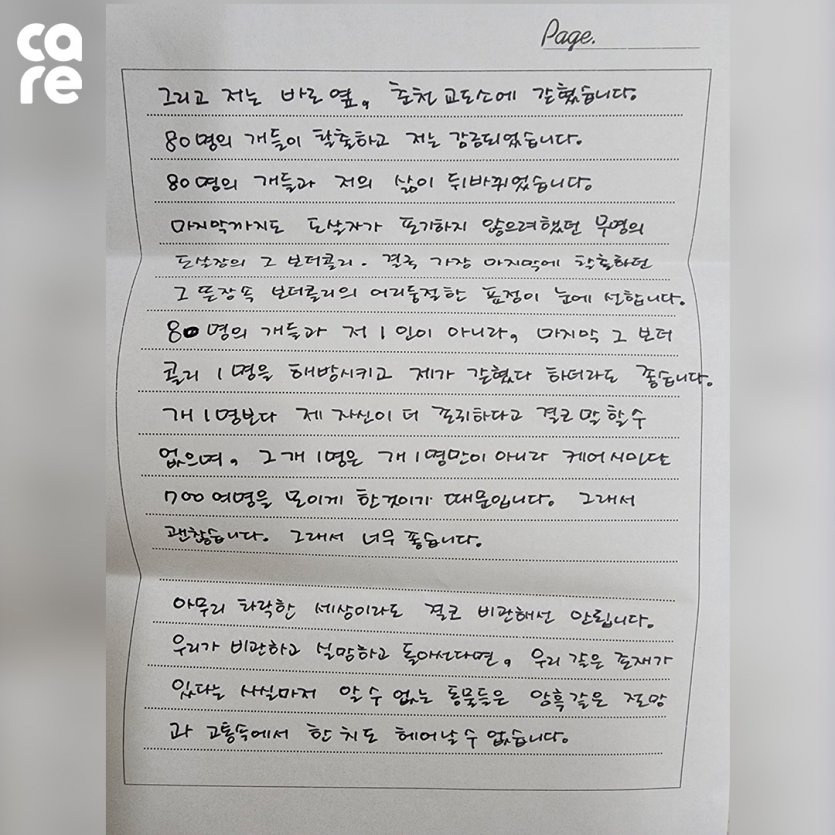 care
Page.
그리고 저는 바로 옆, 춘천교도소에 갇혔습니다.
80명의 개들이 탈출하고 저는 감금되었습니다.
80명의 개들과 저의 삶이 뒤바뀌었습니다.
마지막까지도 도살자가 포기하지 않으려했던 무명의
도살장의 그 보더콜리. 결국 가장 마지막에 탈출하던
그 뜬장속 보더콜리의 어리둥절한 표정이 눈에 선합니다.
80명의 개들과 저 1인이 아니라, 마지막 그 보더
콜리 1명을 해방시키고 제가 갇혔다 하더라도 좋습니다.
개 1명보다 제 자신이 더 포괄하다고 결코 말 할 수
없으며, 그 개 1명은 개 1명만이 아니라 케어 시민단
700여명을 모이게 한것이기 때문입니다. 그래서
괜찮습니다. 그래서 너무 좋습니다.
아무리 타락한 세상이라도 결코 비관해선 안됩니다.
우리가 비관하고 실망하고 돌아선다면, 우리 같은 존재가
있다는 사실마저 알 수 없는 동물들은 암흑같은 절망
과 고통속에서 한 치도 헤어날 수 없습니다.